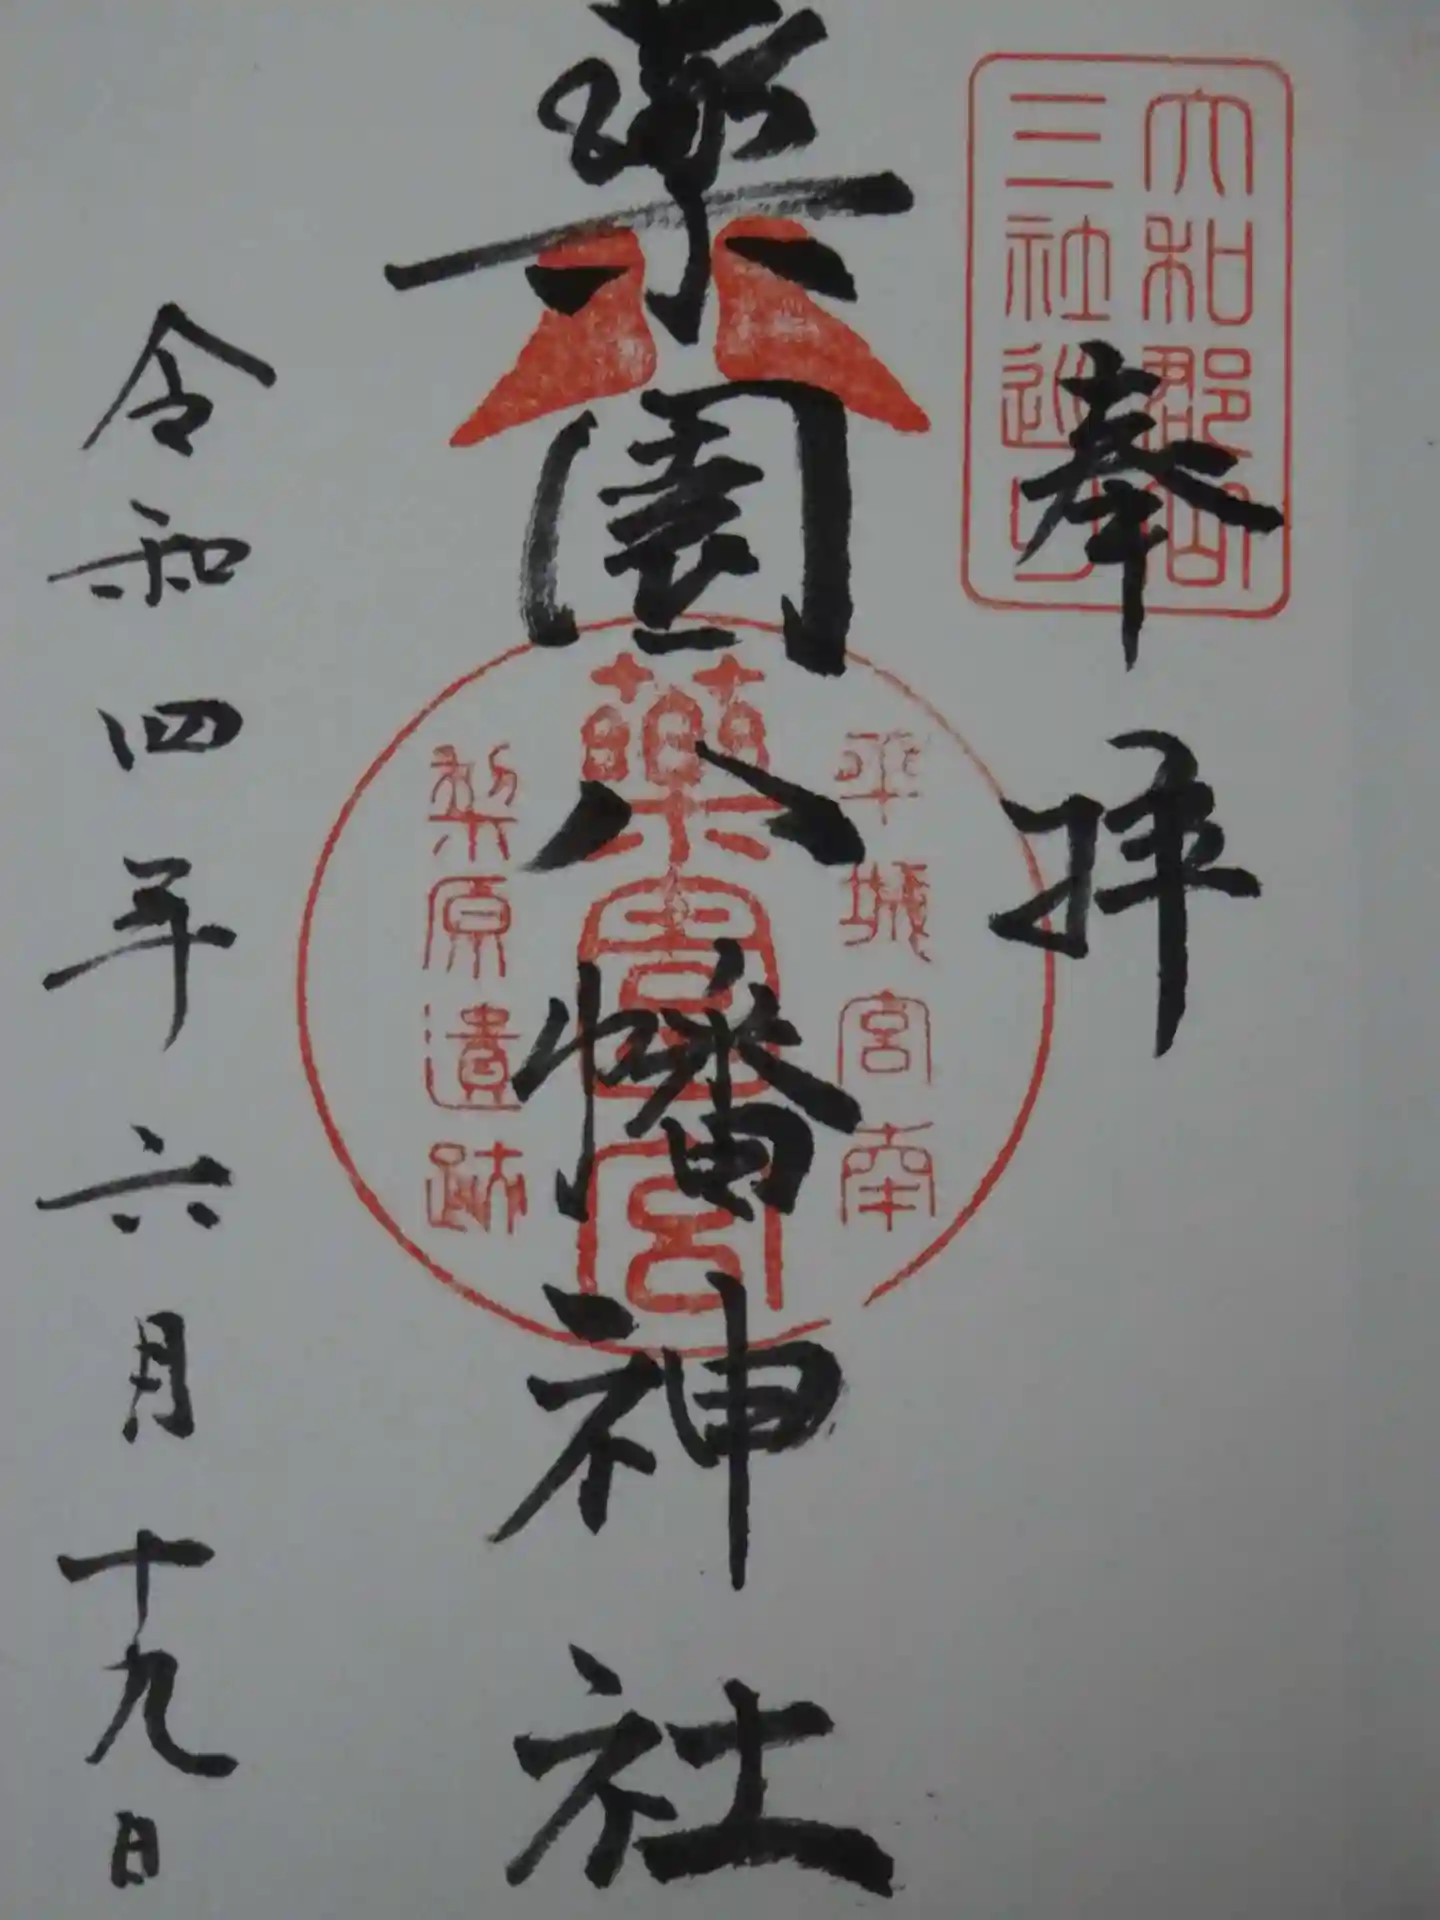 大和郡山
三社巡り
奉拝
薬園八幡神社
平城宮南
藥園宮
梨原遺跡
令和四年六月十九日